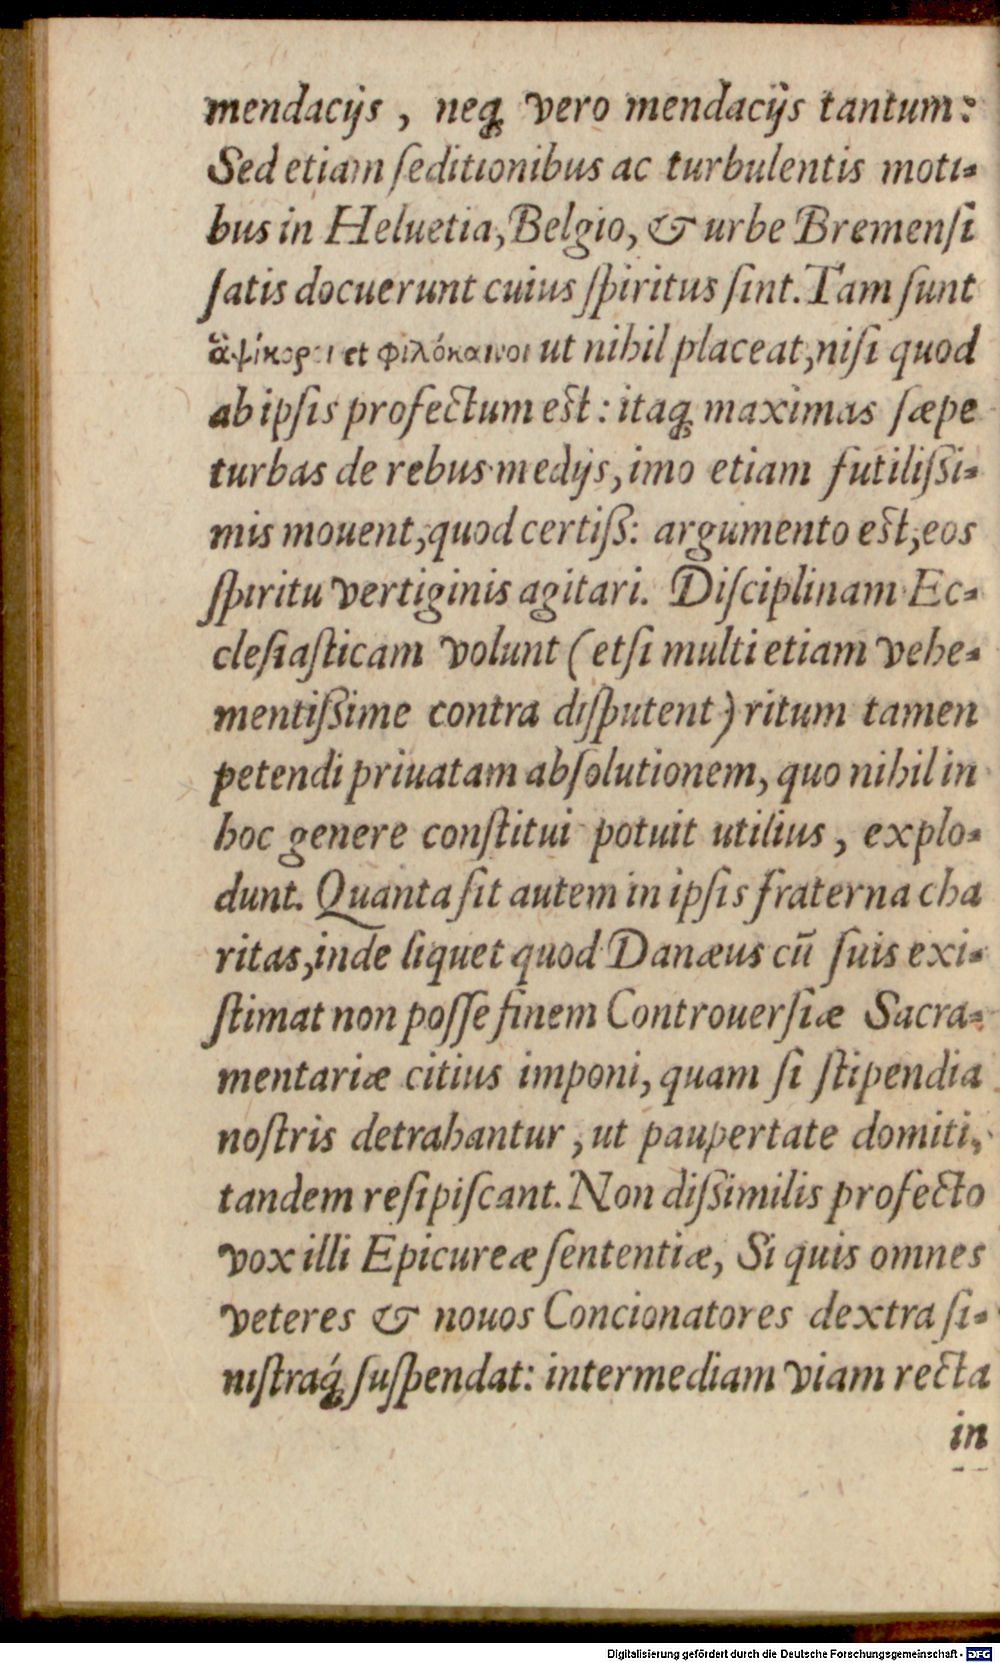 mendacijs , neq́ꝫ vero mendacijs tantum:
Sed etiam ſeditionibus ac turbulentis moti-
bus in Heluetia, Belgio, & urbe Bremenſi
ſatis docuerunt cuius ſpiritus ſint. Tam ſunt
ἁψίκοροι et φιλόκαινοι ut nihil placeat, niſi quod
ab ipſis profectum est: itaqꝫ maximas ſæpe
turbas de rebus medijs, imo etiam futiliſsi-
mis mouent, quod certiſs: argumento est, eos
ſpiritu vertiginis agitari. Diſciplinam Ec-
cleſiaſticam volunt (etſi multi etiam vehe-
mentiſsime contra diſputent) ritum tamen
petendi priuatam abſolutionem, quo nihil in
hoc genere conſtitui potuit utilius, explo-
dunt. Quanta ſit autem in ipſis fraterna cha
ritas, inde liquet quod Danæus cū ſuis exi-
ſtimat non poſſe finem Controuerſiæ Sacra-
mentariæ citius imponi, quam ſi ſtipendia
noſtris detrahantur, ut paupertate domiti,
tandem reſipiſcant. Non diſsimilis profecto
vox illi Epicureæ ſententiæ, Si quis omnes
veteres & nouos Concionatores dextra ſi-
niſtraq́ꝫ ſuſpendat: intermediam viam recta
in
Digitalisierung gefördert durch die Deutsche Forschungsgemeinschaft - DFG